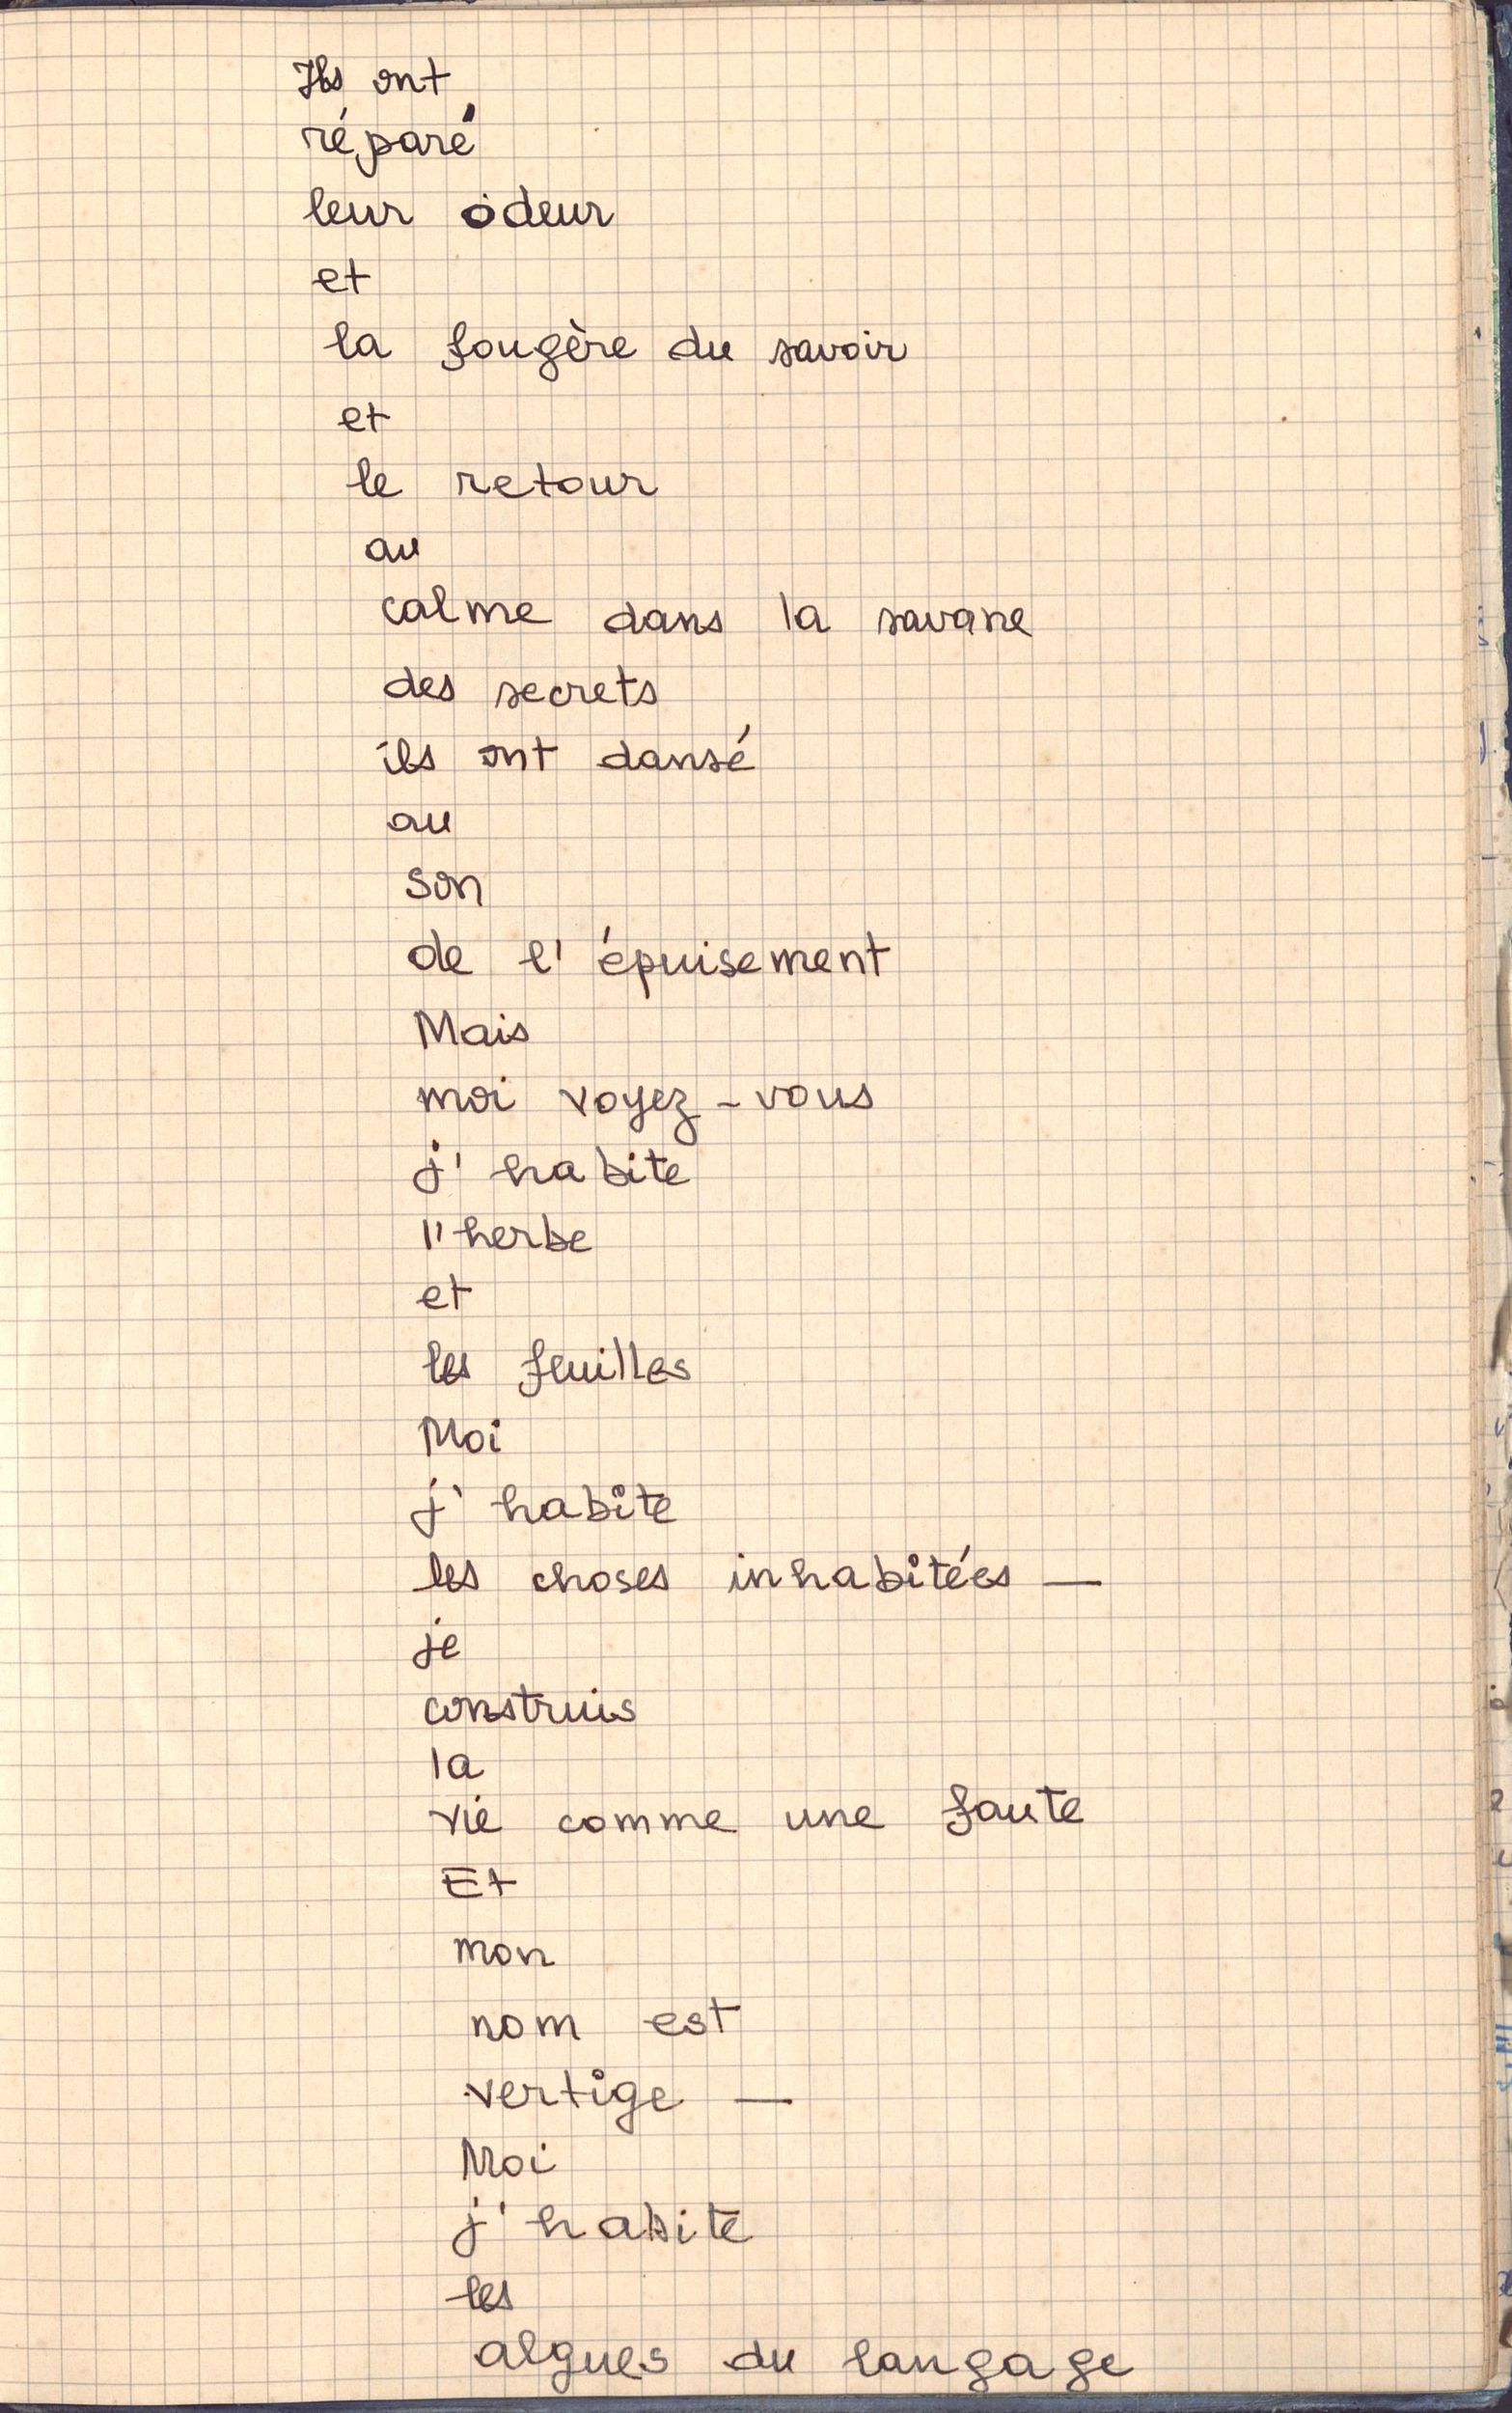 Ils ont
réparé
leur odeur
et
la fougère du savoir
et
le retour
au
calme dans la savane
des secrets
ils ont dansé
au
son
de l'épuisement
Mais
moi voyez-vous
j'habite
l'herbe
et
les feuilles
Moi
j'habite
les choses inhabitées —
je
construis
la
vie comme une faute
Et
mon
nom est
vertige —
Moi
j'habite
les
algues du langage